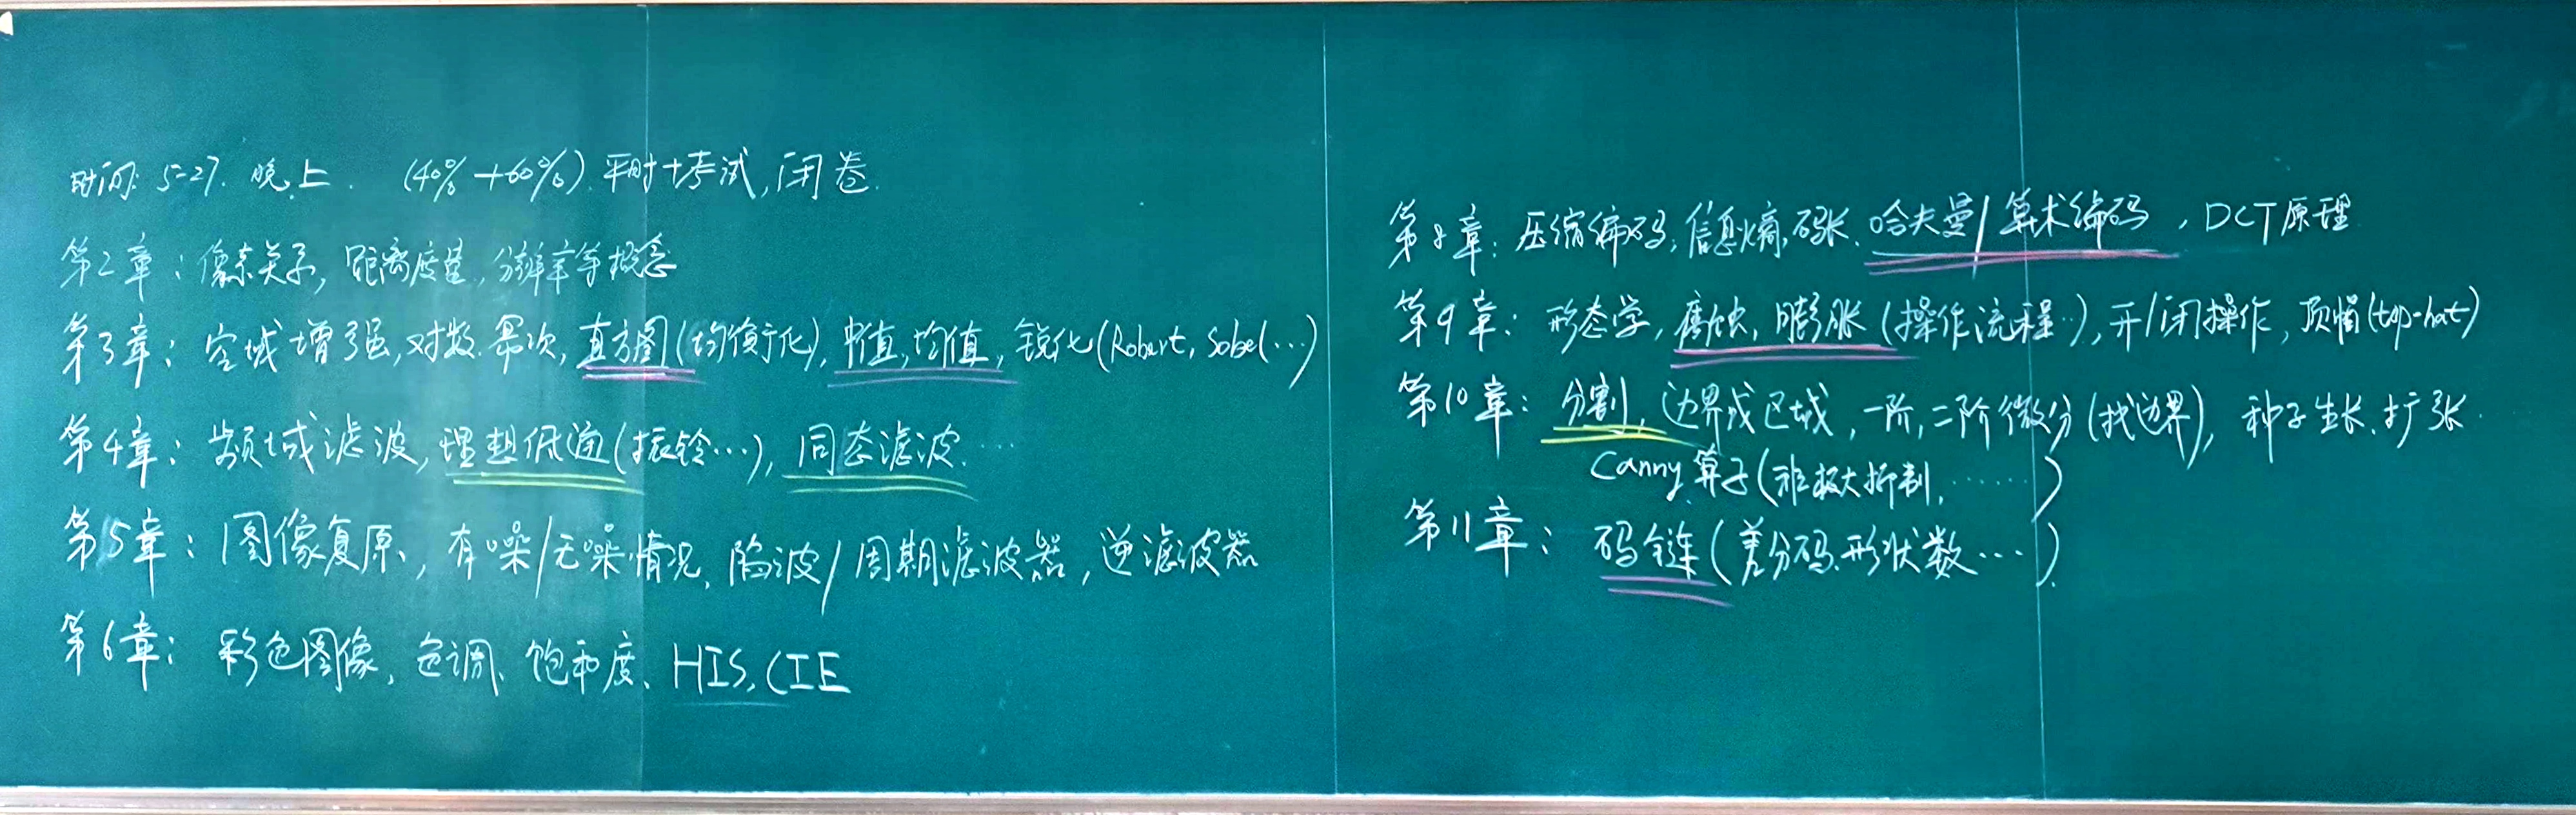 时间: 5-27. 晚上. (40%+60%). 平时+考试, 闭卷.
第2章: 像素关系, 距离度量, 分辨率等概念
第3章: 空域增强, 对数.幂次, 直方图(均衡化), 中值, 均值, 锐化(Robert, Sobel…)
第4章: 频域滤波, 理想低通(振铃…), 同态滤波.…
第5章: 图像复原, 有噪/无噪情况, 陷波/周期滤波器, 逆滤波器
第6章: 彩色图像, 色调、饱和度、HIS, CIE
第8章: 压缩编码, 信息熵, 码长. 哈夫曼/算术编码, DCT原理
第9章: 形态学, 腐蚀, 膨胀(操作流程…), 开/闭操作, 顶帽(top-hat)
第10章: 分割, 边界或区域, 一阶,二阶微分(找边界), 种子生长.扩张.
Canny算子(非极大抑制, ……)
第11章: 码链(差分码.形状数…).